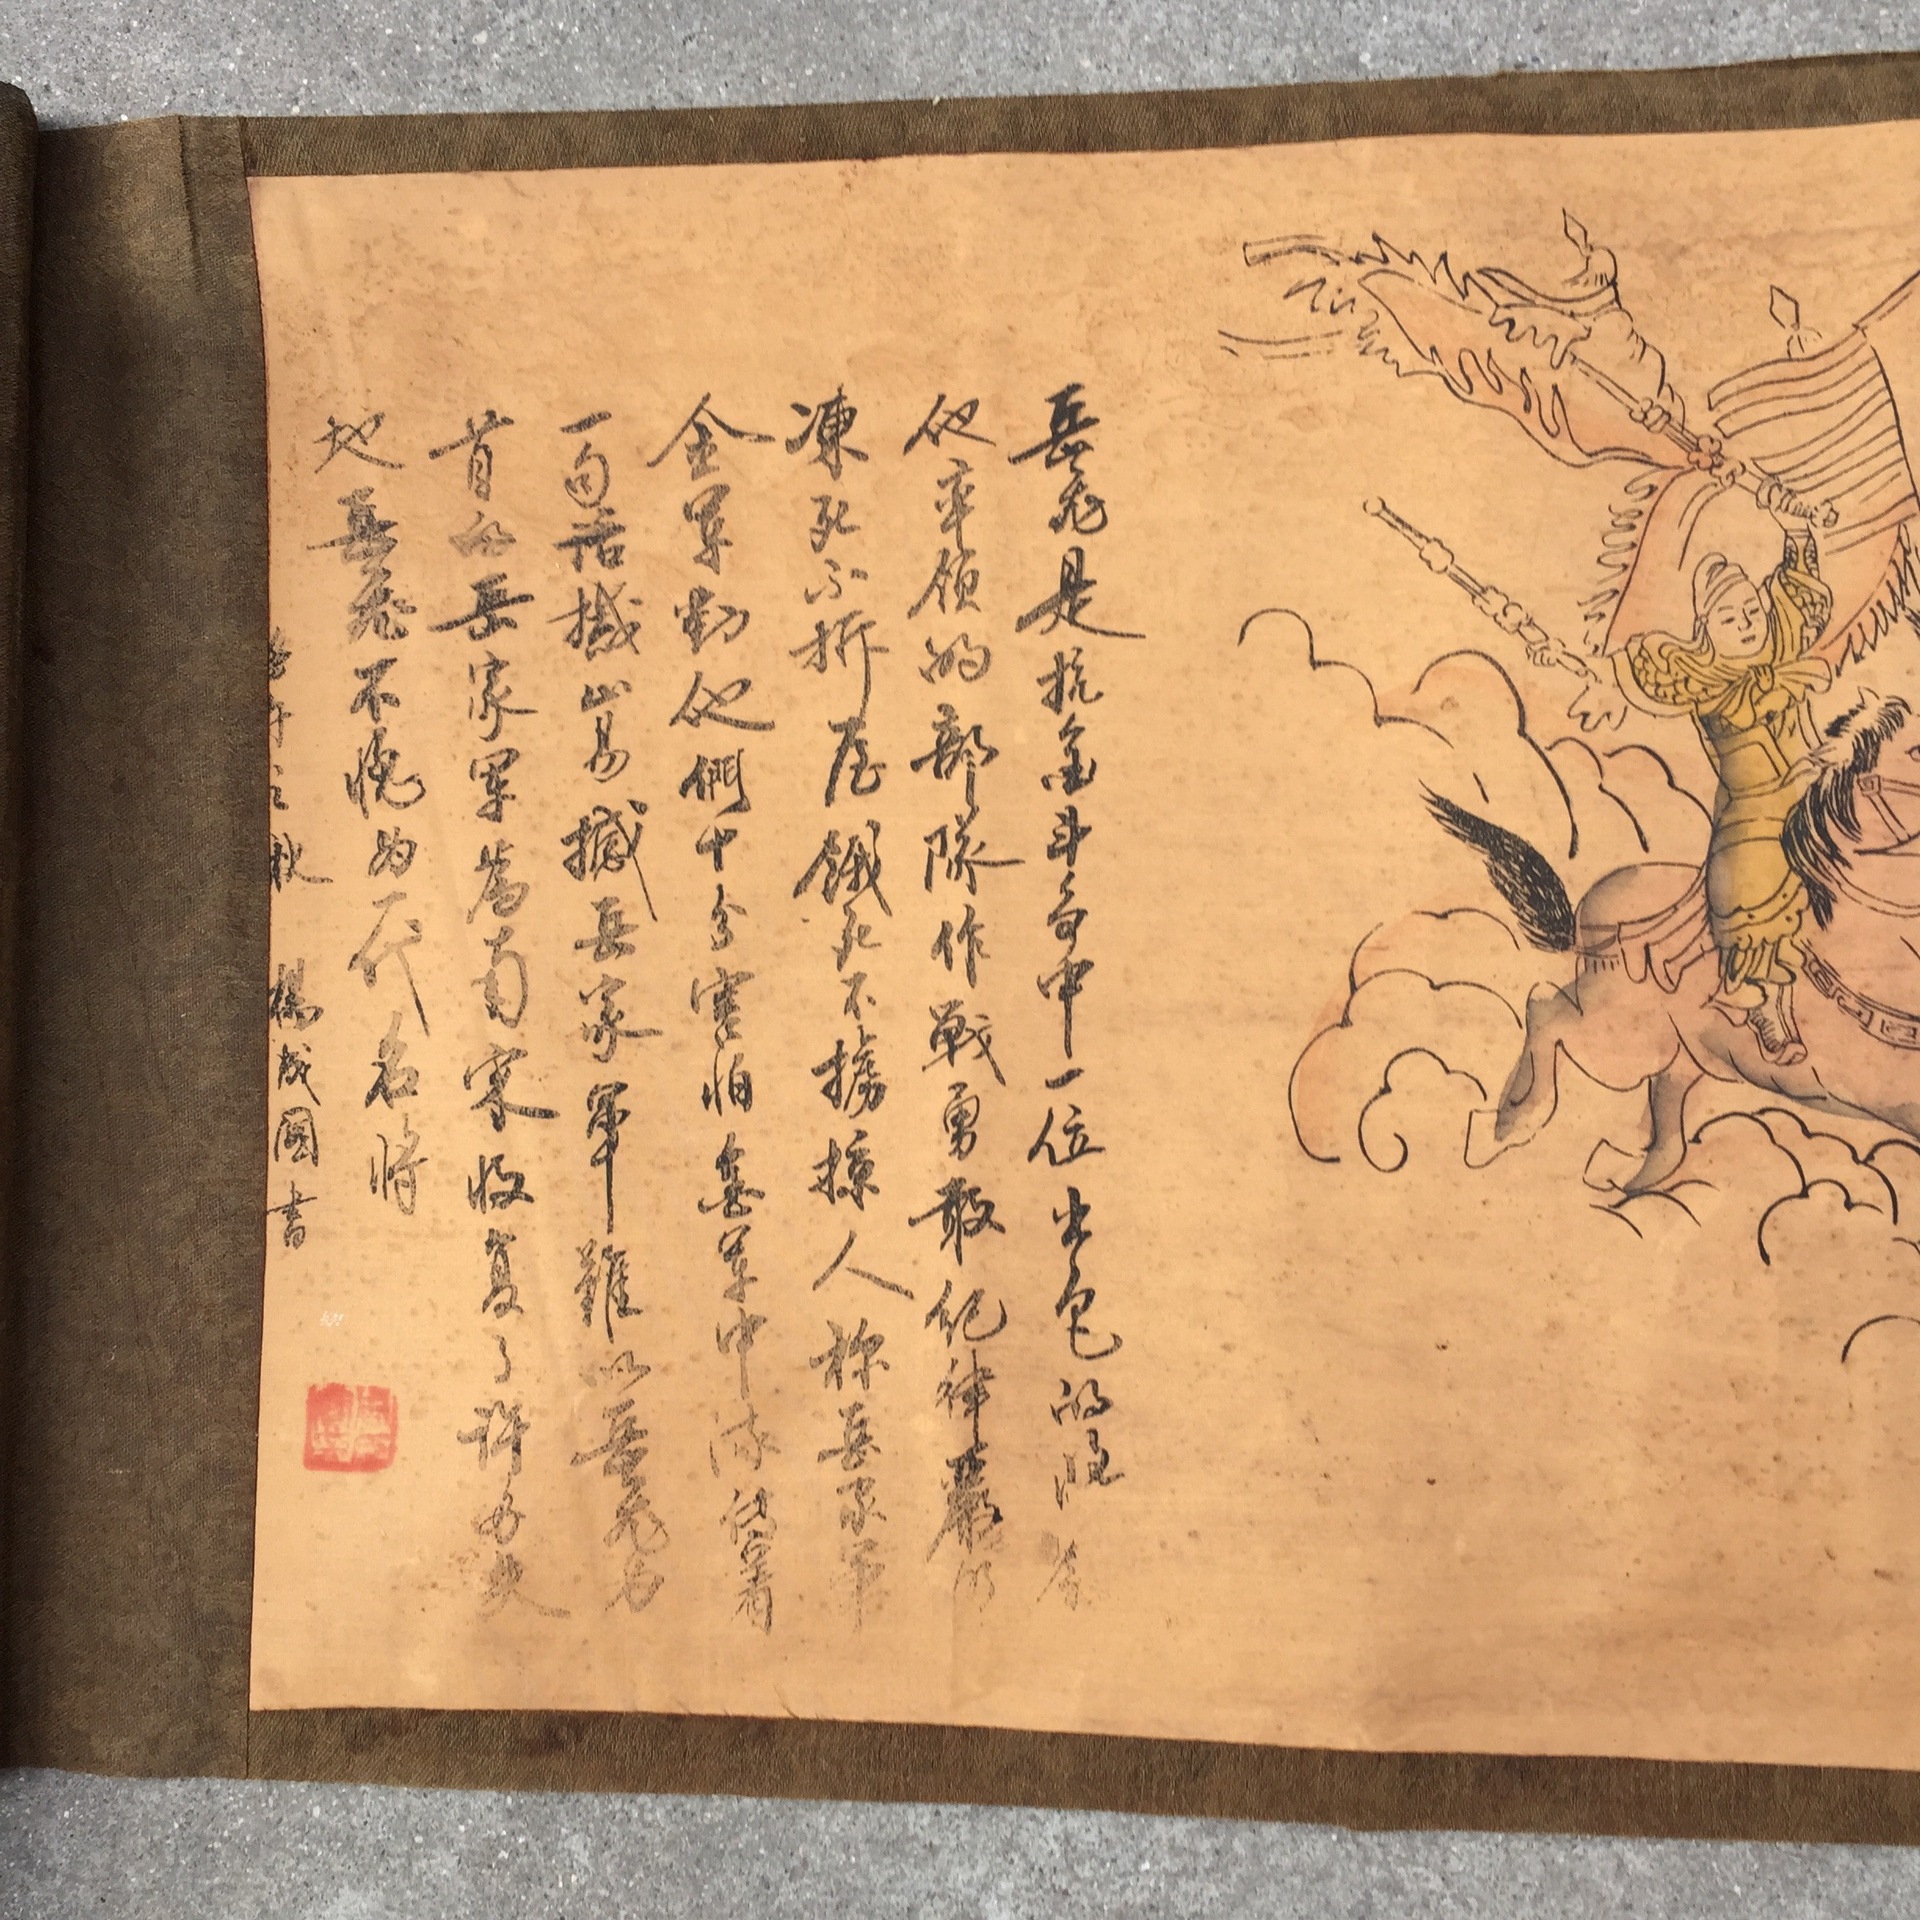 岳飛是抗金斗爭中一位出色的將
他率領的部隊作戰勇敢紀律嚴明
凍死不拆屋餓死不擄掠人称岳家軍
金軍對他們十分害怕金軍中流傳着
一句話撼山易撼岳家軍難以岳飛为
首的岳家軍為南宋收复了許多失
地岳飛不愧为一代名将
秋 楊成國書